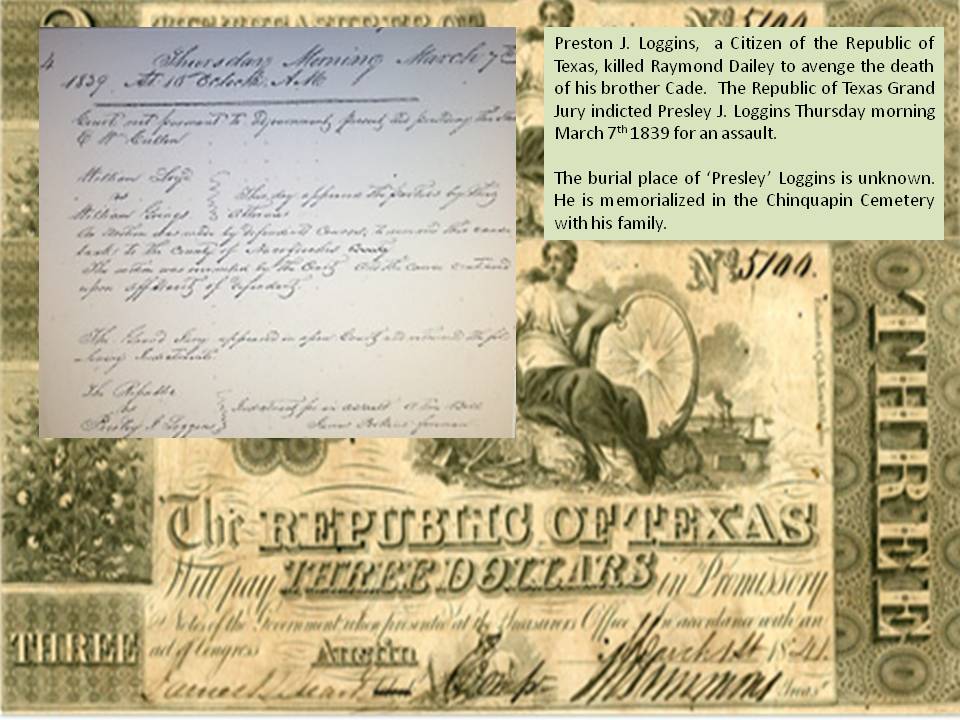 4 Thursday Morning March 7th
1839 At 10 Oclock A.M
Court met pursuant to adjournment present and presiding the
E W Cullen
William Lloyd
vs
William Grigs
This day appeared the parties by their
Attornies
back to the County of Nacogdoches County
upon affidavit of defendant
The Grand Jury appeared in open Court and returned the fol
lowing Indictments
The Republic
vs
Presley J Loggins
Indictment for an assault A True Bill
foreman
Preston J. Loggins, a Citizen of the Republic of
Texas, killed Raymond Dailey to avenge the death
of his brother Cade. The Republic of Texas Grand
Jury indicted Presley J. Loggins Thursday morning
March 7th 1839 for an assault.
The burial place of ‘Presley’ Loggins is unknown.
He is memorialized in the Chinquapin Cemetery
with his family.
No 5100.
THREE
The REPUBLIC OF TEXAS
Will pay THREE DOLLARS in Promissory
Notes of the Government when presented at the Treasurers Office in accordance with an
act of Congress Austin March 1st 1841.
THREE